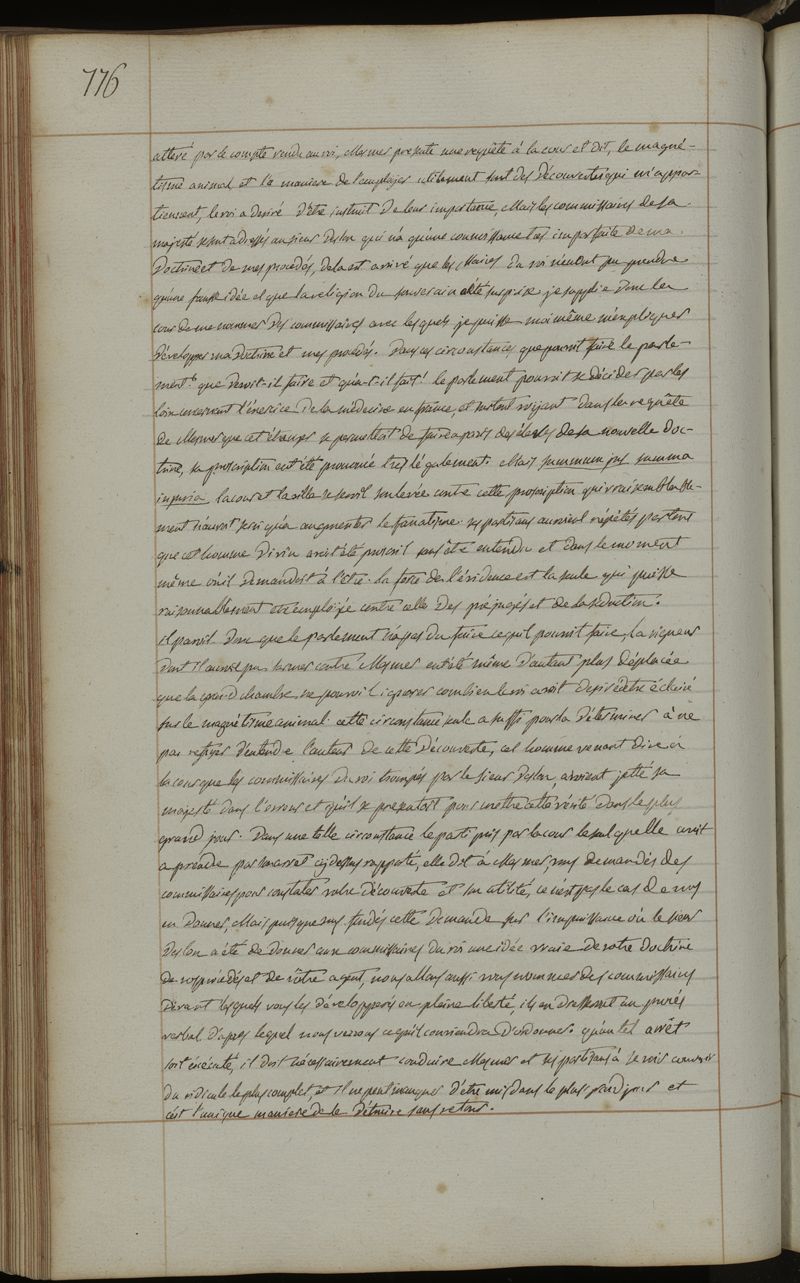 776
atteré par le compte rendu au roi, Mesmer presente une requête à la cour et dit, le magné-
tisme animal et la maniere de l'employer utilement sont des découvertes qui m'appar-
tiennent, le roi a desiré d'etre instruit de leur importance, Mais les commissaires de sa
majesté se sont adressés au sieur Deslon qui n'a qu'une connoissance tres imparfaite de ma
doctrine et de mes procedés, dela est arrivé que les commissaires du roi n'en ont pu prendre
qu'une fausse idée et que la religion du souverain a été surprise je supplie donc la
cour de me nommer des commissaires avec lesquels je puisse moi même m'expliquer
développer ma doctrine et mes procedés. Dans ces circonstances que pouvoit faire le parle-
ment? que devoit-il faire et qu'a-t-il fait? le parlement pouvoit se décider par les
loix concernant l'exercice de la médecine en france, et surtout voyant dans la requête
de Mesmer que cet étranger se permettoit de faire à paris des éleves de sa nouvelle doc-
trine, sa proscription eut été prononcée très légalement. Mais summum jus summa
injuria, la cour et la ville se seroit soulevée contre cette proscription qui vraisemblable-
ment n'auroit servi qu'a augmenter le fanatisme. ses partisans auroient répétés partout
que cet homme divin avoit été proscrit sans être entendu et dans le moment
même où il demandoit à l'être. la force de l'évidence est la seule qui puisse
raisonnablement etre employée contre celle des préjugés et de la séduction.
il paroit donc que le parlement n'a pas du faire ce qu'il pouvoit faire, La rigueur
dont il auroit pu s'armer contre Mesmer eut été même d'autant plus déplacée
que la grand chambre ne pouvoit ignorer combien le roi avoit desiré d'etre éclairé
sur le magnétisme animal. cette circonstance seule a suffi pour la déterminer à ne
pas refuser d'entendre l'auteur de cette découverte, cet homme venant dire à
la cour que les commissaires du roi trompés par le sieur Deslon, avoient jetté sa
majesté dans l'erreur et qu'il se presentoit pour mettre cette vérité dans le plus
grand jour. Dans une telle circonstance le parti pris par la cour le seul qu'elle avoit
a prendre par l'arret cy dessus rapporté, elle dit à Mesmer, vous demandés des
commissaires pour constater votre découverte et son utilité, ce n'est pas le cas de vous
en donner, Mais puisque vous fondés cette demande sur l'impuissance où le sieur
Deslon a été de donner aux commissaires du roi une idée vraie de votre doctrine
de vos procédés et de vôtre agent, nous allons aussi vous nommer des commissaires
devant lesquels vous les développerés en pleine liberté, ils en dresseront un procés
verbal d'apres lequel nous verrons ce qu'il conviendra d'ordonner. qu'un tel arrêt
soit éxécuté, il doit nécessairement conduire Mesmer et ses partisans à se voir couverts
du ridicule le plus complet, et il ne peut manquer d'être mis dans le plus grand jour et
c'est l'unique maniere de le détruire sans retour.